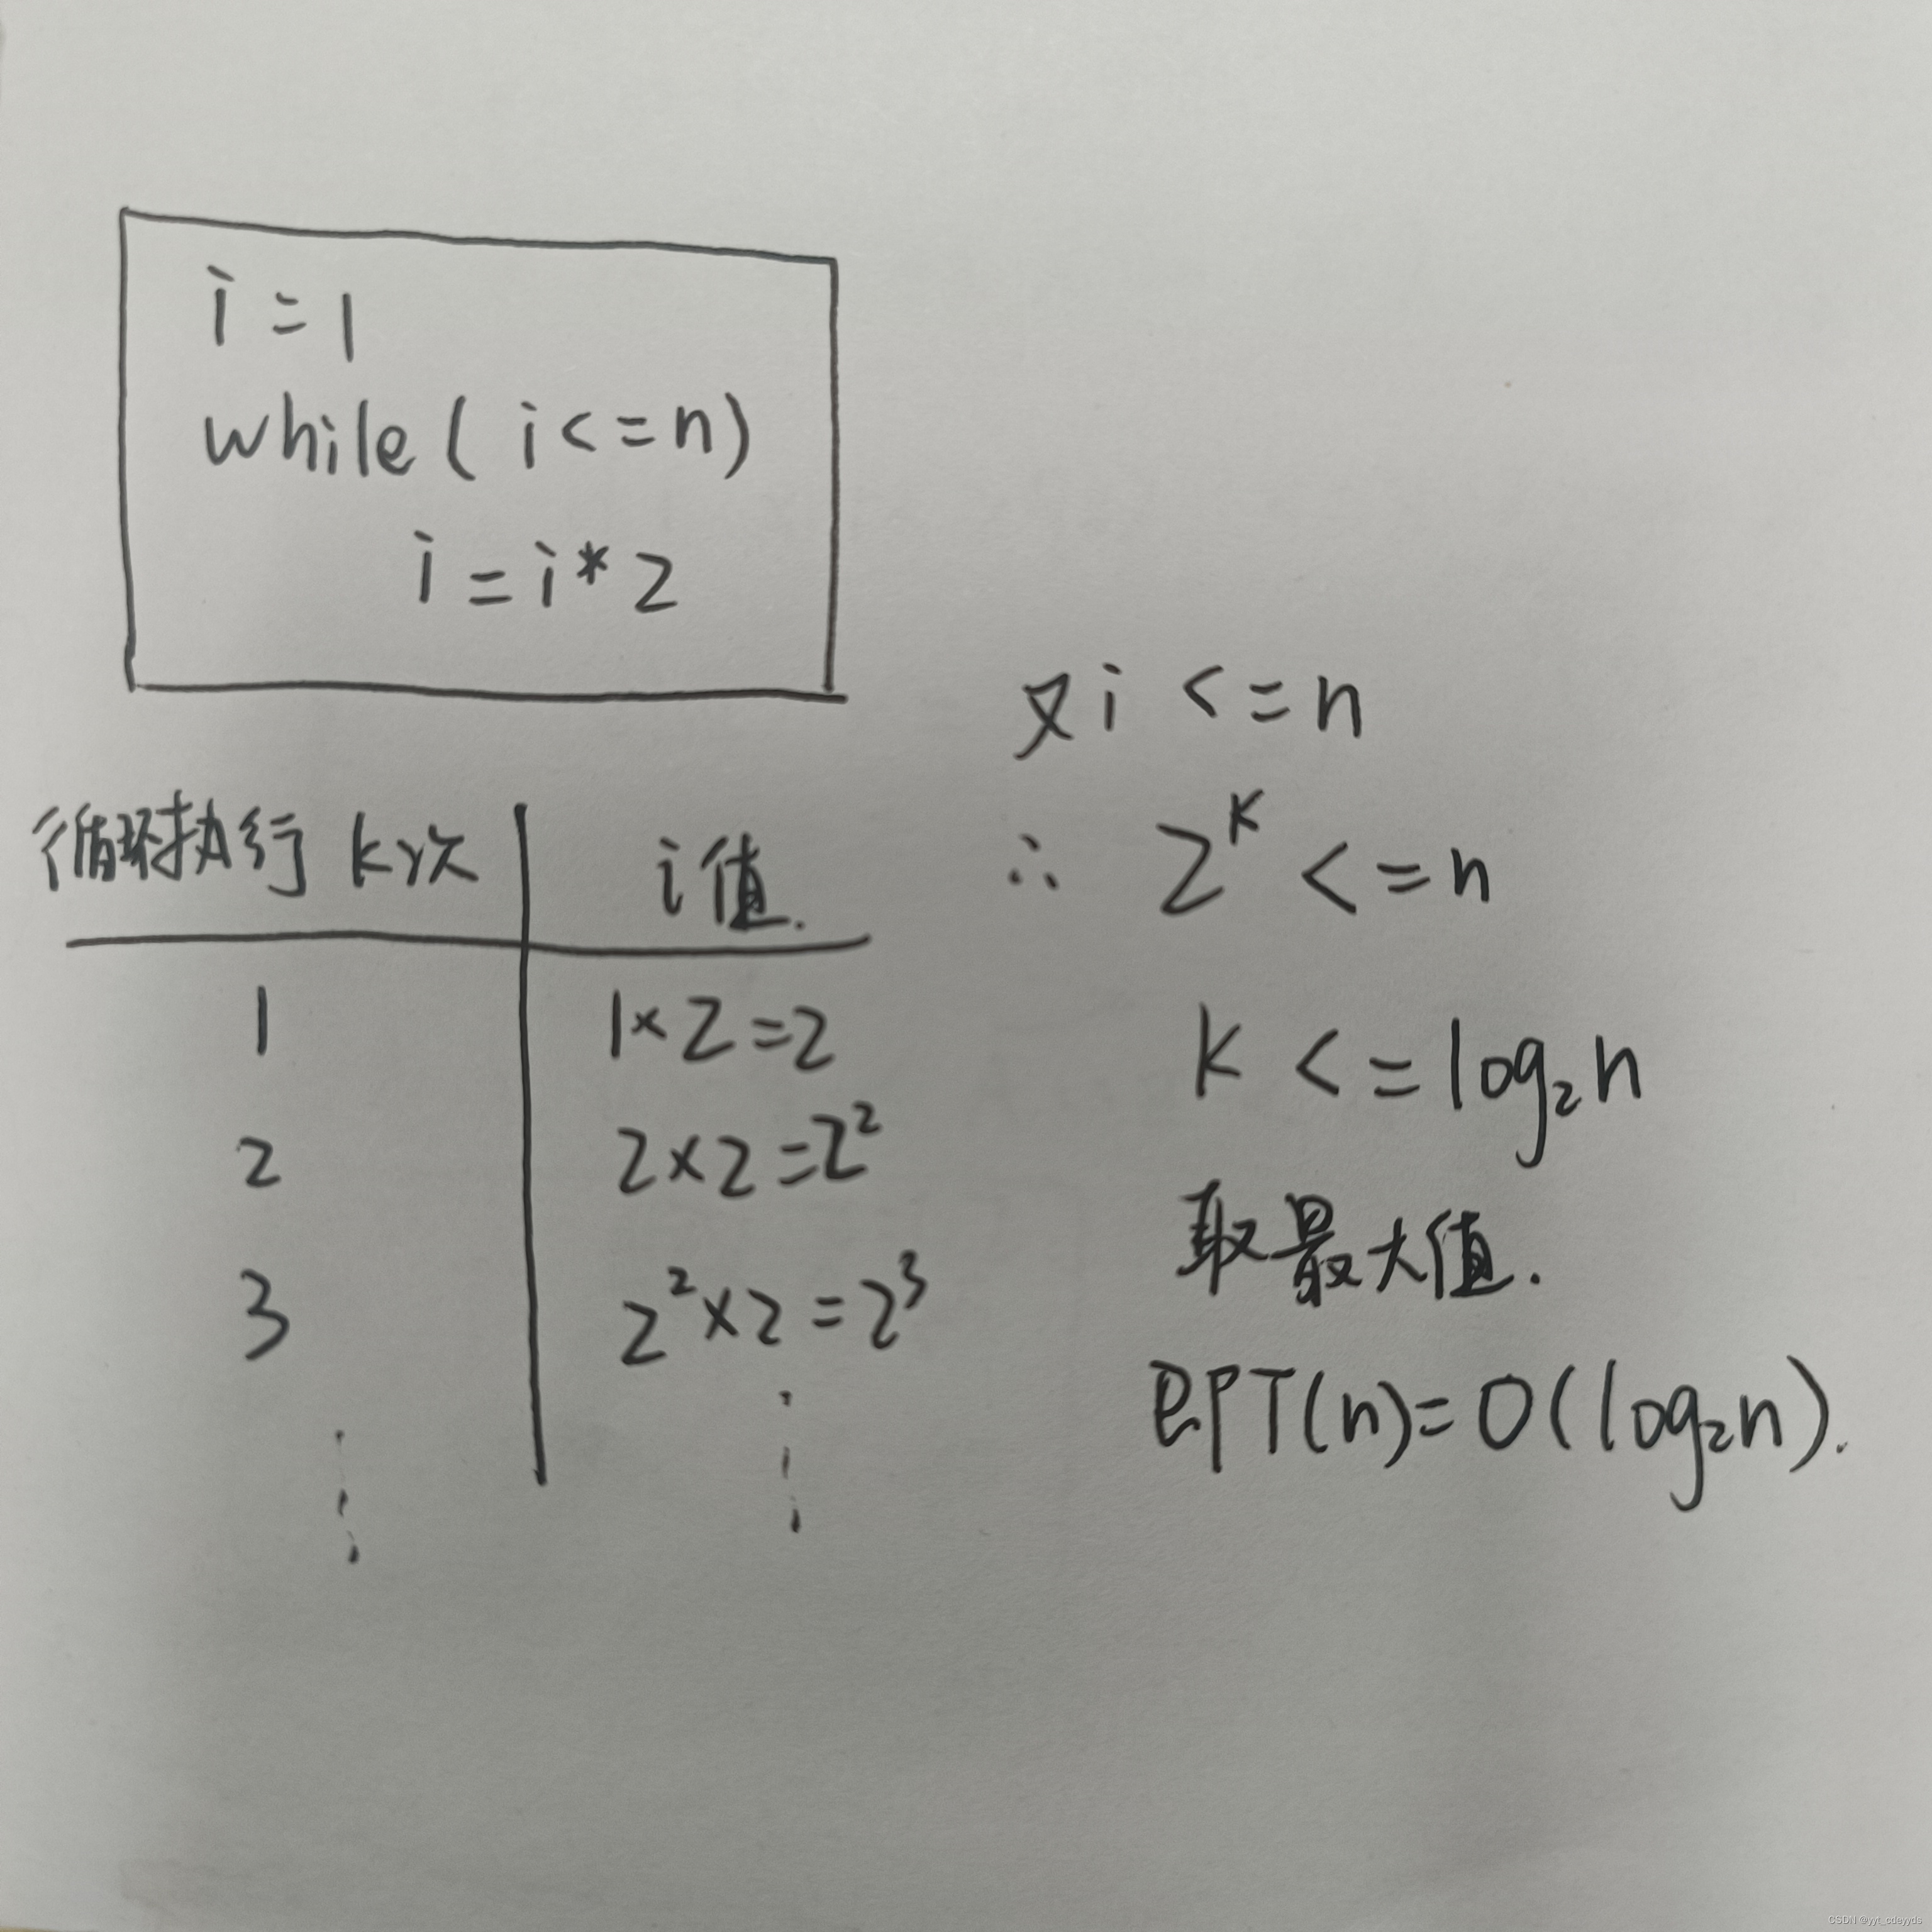 i=1
while(i<=n)
i=i*2
循环执行k次 i值.
1 1×2=2
2 2×2=2²
3 2²×2=2³
又i<=n
∴ 2ᴷ<=n
K<=log₂n
取最大值.
即T(n)=O(log₂n).
CSDN @yyt_cdeyyds